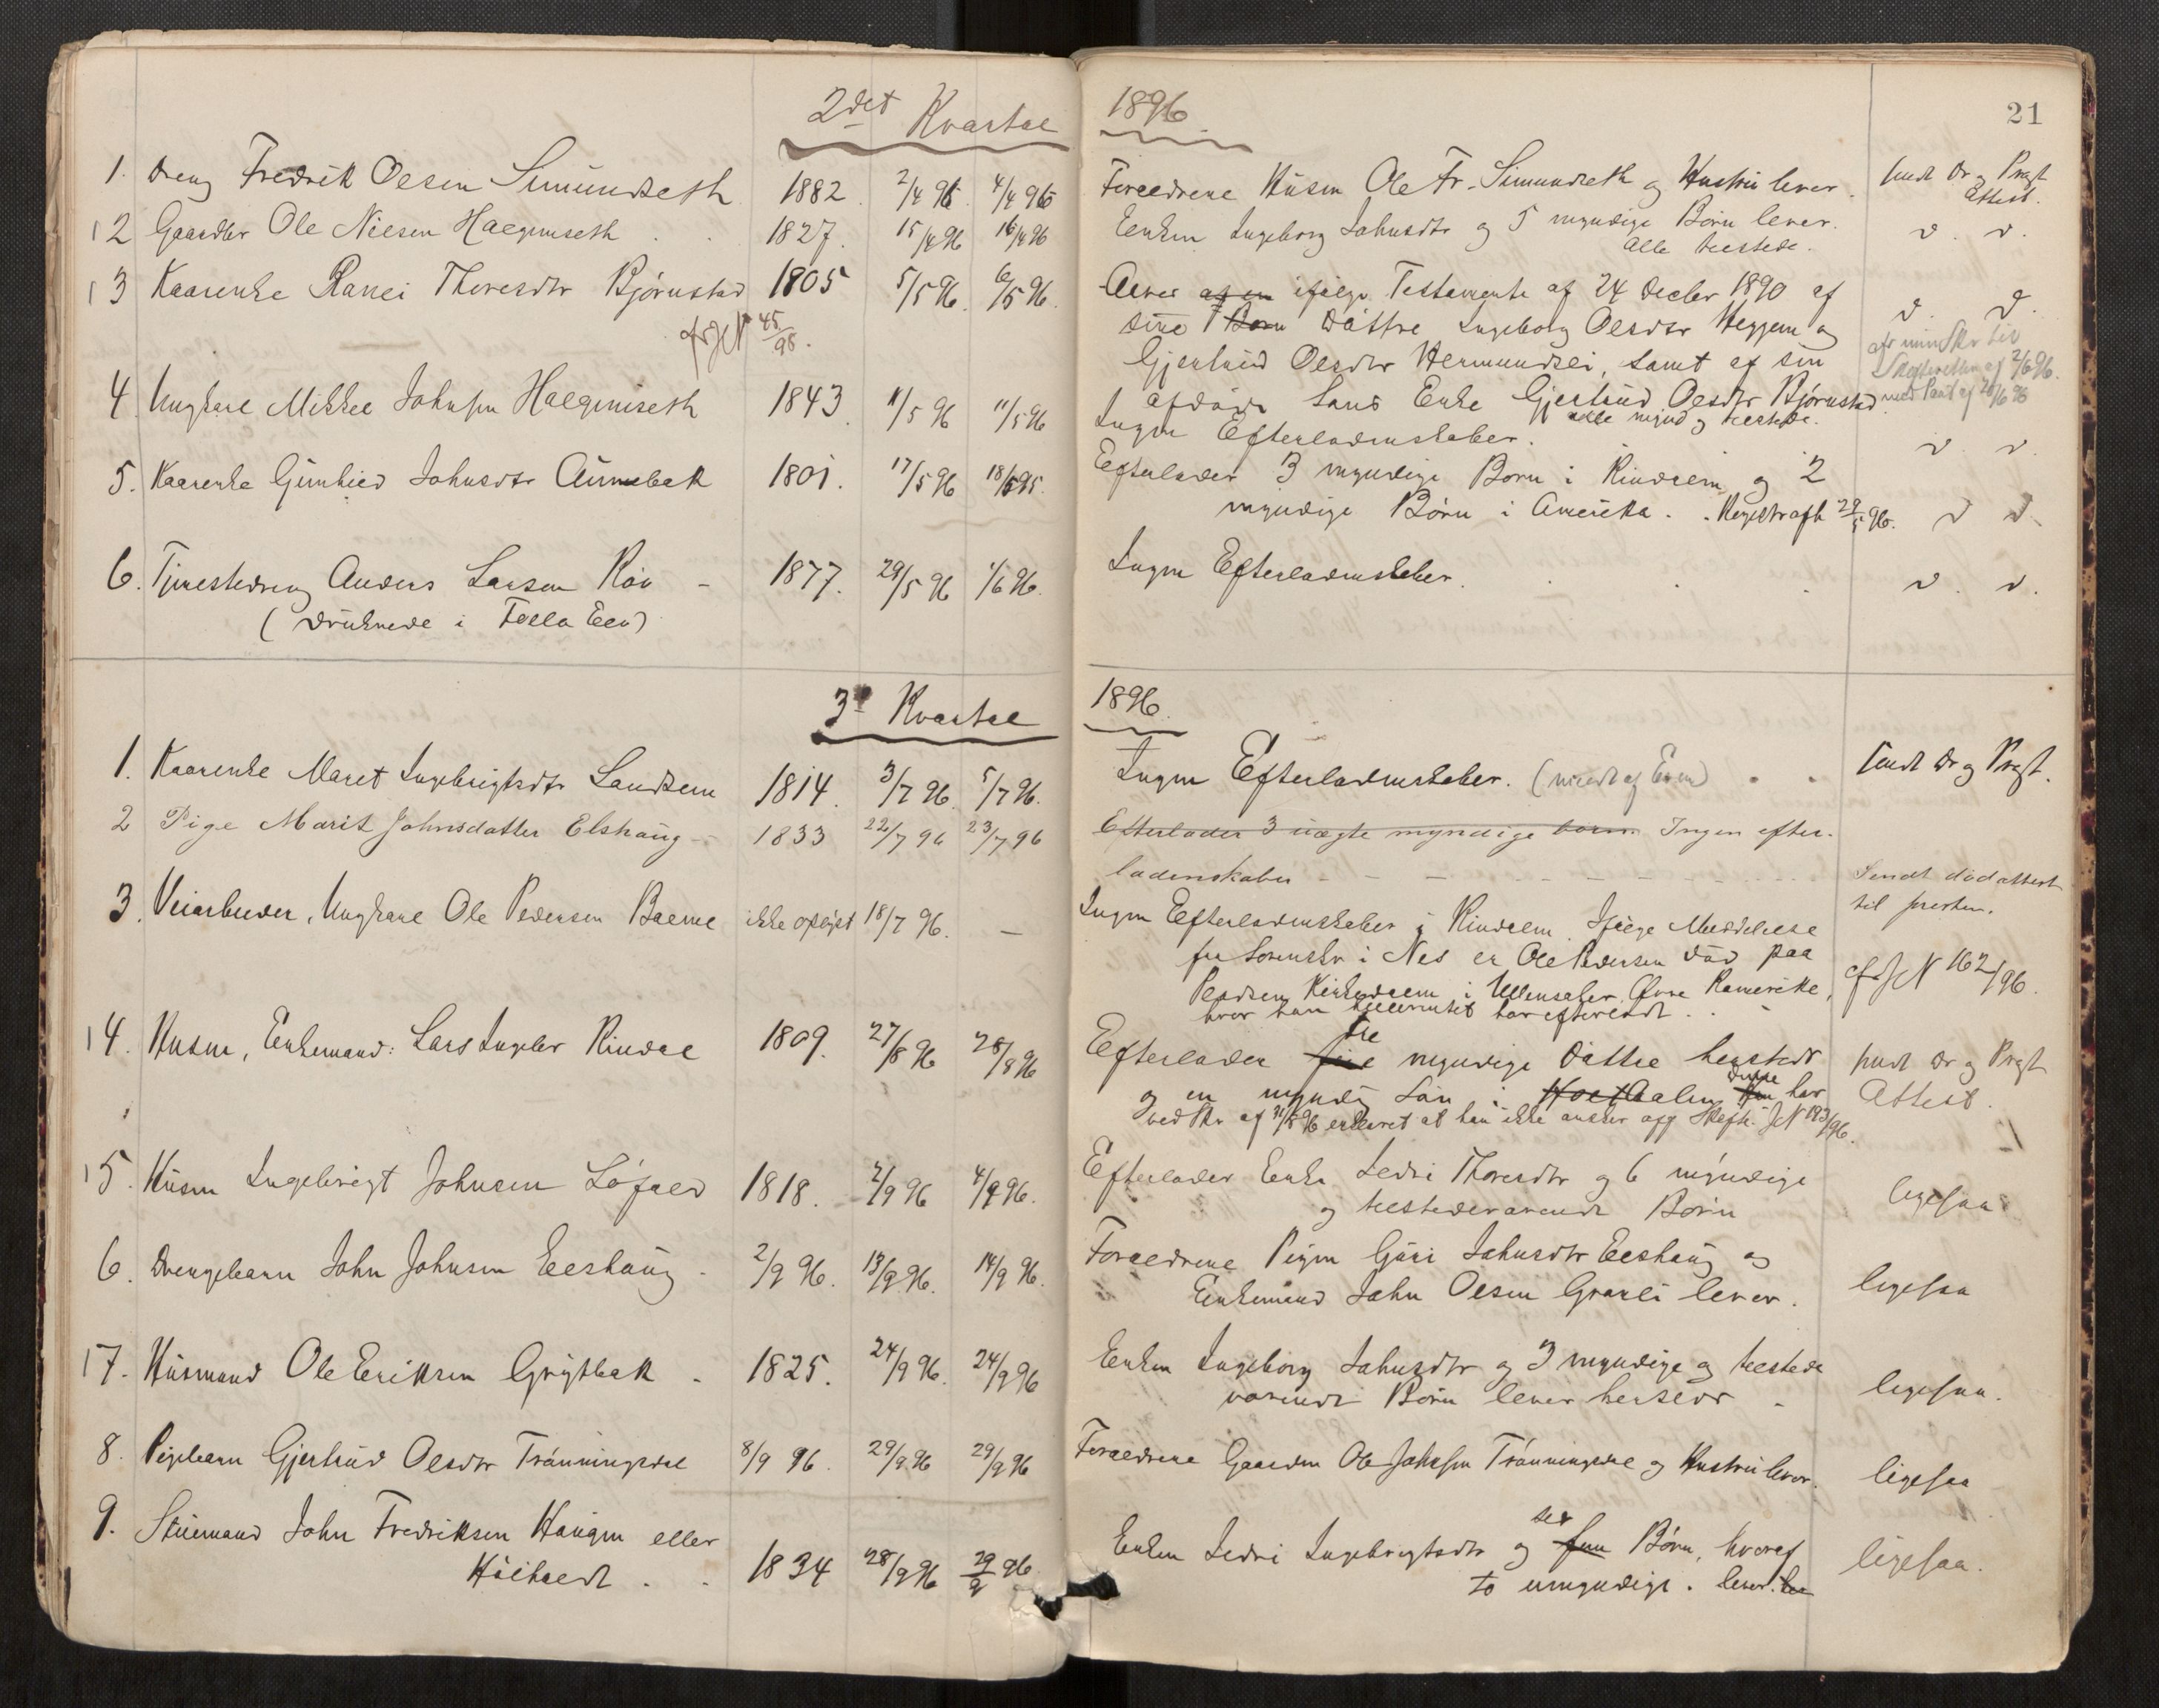 21
2det Kvartal 1896
1. Dreng Fredrik Olsen Simundseth 1882 2/4 96 4/4 96 Forældrene Husm Ole Fr. Simundseth og Hustru lever. sendt Dr og Prgt
Attest.
2 Gaardbr Ole Nilsen Halgunseth 1827. 15/4 96 16/4 96 Enken Ingeborg Johnsdtr og 5 myndige Børn lever.
Alle tilstede.
3 Kaarenke Randi Thoresdtr Bjørnstad 1805 5/5 96. 6/5 96. Arves af en ifølge Testamente af 24 Decbr 1890 af
45/98.
sine Børn Døttre Ingeborg Olsdtr Heggem og
Gjertrud Olsdtr Hermundsli, samt af sin
afdøde Søns Enke Gjertrud Olsdtr Bjørnstad
alle mynd og tilstede.
4 Ungkarl Mikkel Johnsen Halgunseth 1843 11/5 96 11/5 96 Ingen Efterladenskaber.
5. Kaarenke Gunhild Johnsdtr Aunebak 1801. 17/5 96 18/5 95. Efterlader 3 myndige Børn i Rindalen og 2
myndige Børn i Amerika.
6. Tjenestedreng Anders Larsen Røv 1877. 29/5 96 1/6 96. Ingen Efterladenskaber.
(druknede i Folla Elv)
3die Kvartal 1896
1. Kaarenke Maret Ingebrigtsdtr Landsem 1814. 3/7 96. 5/7 96. Ingen Efterladenskaber. sendt Dr og Prgt.
2 Pige Marit Johnsdatter Elshaug 1833 22/7 96 23/7 96 Efterlader 3 uægte myndige børn. Ingen efter-
ladenskaber Sendt dødattest
til presten.
3. Veiarbeider, Ungkarl Ole Pedersen Bolme ikke oplyst 18/7 96. — Ingen Efterladenskaber i Rindalen. Ifølge Meddelelse
fra Lensm i Nes er Ole Pedersen død paa
i Ullensaker Øvre Romerike,
hvor han har efterladt.
JN 162/96.
4. Husm, Enkemand: Lars Ingebr Rindal 1809. 27/8 96 28/8 96 Efterlader fire tre myndige Døttre herstedt
og en myndig Søn i Aalen denne har
ved Skr af 31/8 96 erklæret at han ikke ønsker off Skifte. JN 193/96.
sendt Dr og Prgt
Attest.
5. Husm Ingebrigt Johnsen Løfald 1818. 2/9 96 4/9 96. Efterlader Enke Sedri Thoresdtr og 6 myndige
og tilstedeværende Børn ligesaa
6. Drengebarn John Johnsen Elshaug 2/9 96. 13/9 96. 14/9 96. Forældrene Pigen Guri Johnsdtr Elshaug og
Enkemand John Olsen Granli lever. ligesaa
7. Husmand Ole Eriksen Grytbak 1825. 24/9 96. 24/9 96 Enken Ingeborg Johnsdtr og 3 myndige og tilstede
værende Børn lever herstedt ligesaa.
8. Pigebarn Gjertrud Olsdtr Trønningsdal 8/9 96. 29/9 96 29/9 96 Forældrene Gaardm Ole Johnsen Trønningsdal og Hustru lever. ligesaa
9. Stuemand John Fredriksen Haugen eller
Høiholt 1834 28/9 96 29/9 96 Enken Sedri Ingebrigtsdtr og fem sex Børn, hvoraf
to umyndige. lever. ligesaa.